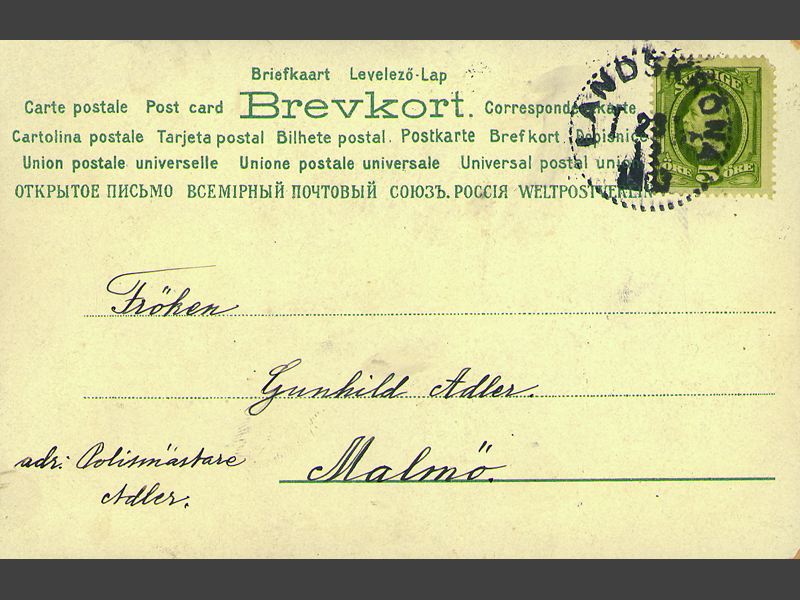 Briefkaart Levelező-Lap
Carte postale Post card Brevkort. Correspondenskarte
Cartolina postale Tarjeta postal Bilhete postal. Postkarte Brefkort. Dopisnice
Union postale universelle Unione postale universale Universal postal union
ОТКРЫТОЕ ПИСЬМО ВСЕМІРНЫЙ ПОЧТОВЫЙ СОЮЗЪ. РОССІЯ WELTPOSTVEREIN
LANDSKRONA
SVERIGE
5 ÖRE
Fröken
Gunhild Adler.
adr: Polismästare
Adler.
Malmö.